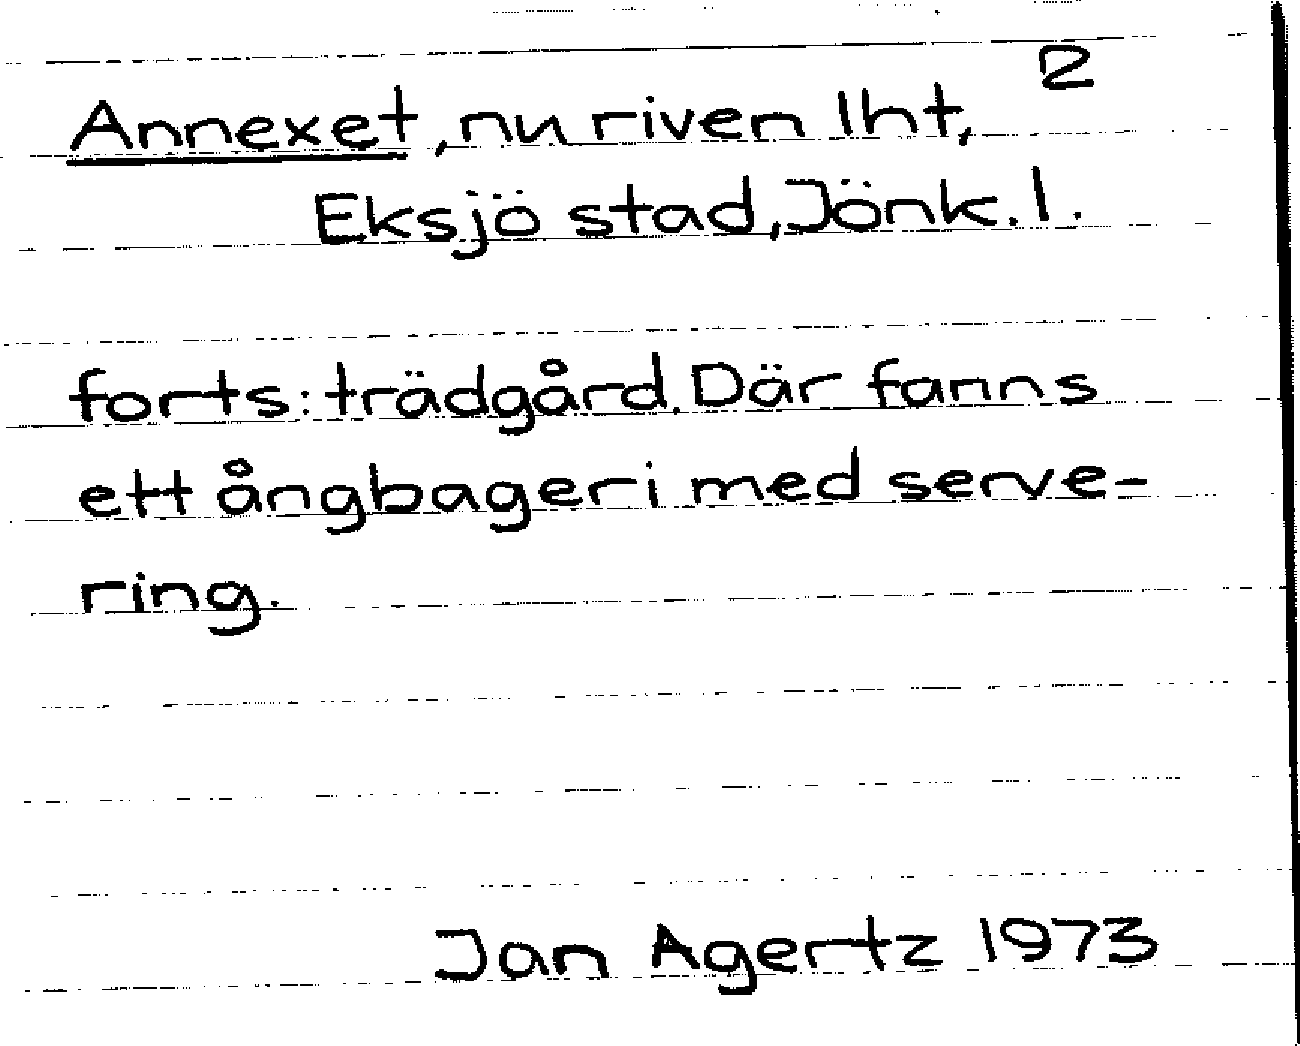 2
Annexet, nu riven lht,
Eksjö stad, Jönk. l.
forts: trädgård. Där fanns
ett ångbageri med serve-
ring.
Jan Agertz 1973